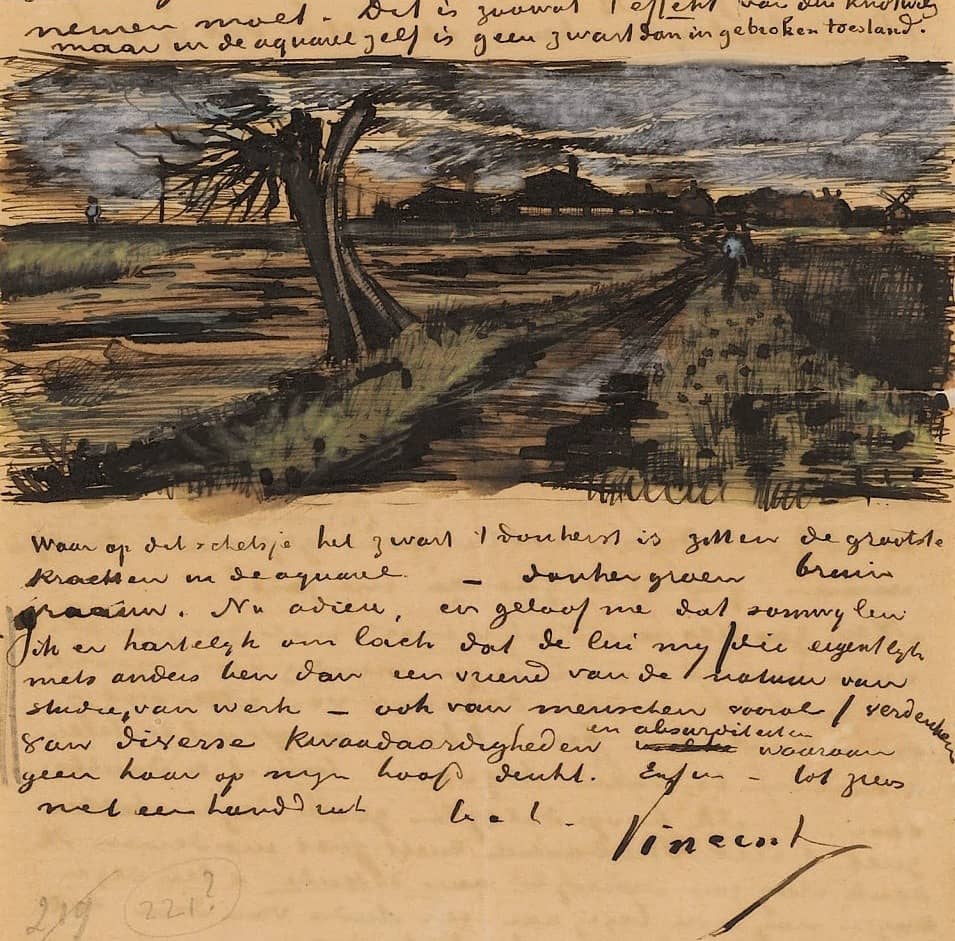 nemen moet. Dit is zoowat 't effekt van den knotwilg
maar in de aquarel zelf is geen zwart dan in gebroken toestand.
Waar op dit schetsje het zwart 't donkerst is zitten de grootste
krachten in de aquarel – donkergroen bruin
graauw. Nu adieu, en geloof me dat somwylen
ik er hartelyk om lach dat de lui my /die eigentlyk
niets anders ben dan een vriend van de natuur van
studie, van werk – ook van menschen vooral/ verdenken
van diverse kwaadaardigheden en absurditeiten waaraan
geen haar op myn hoofd denkt. Enfin – tot ziens
met een handdruk
Vincent
219 221?